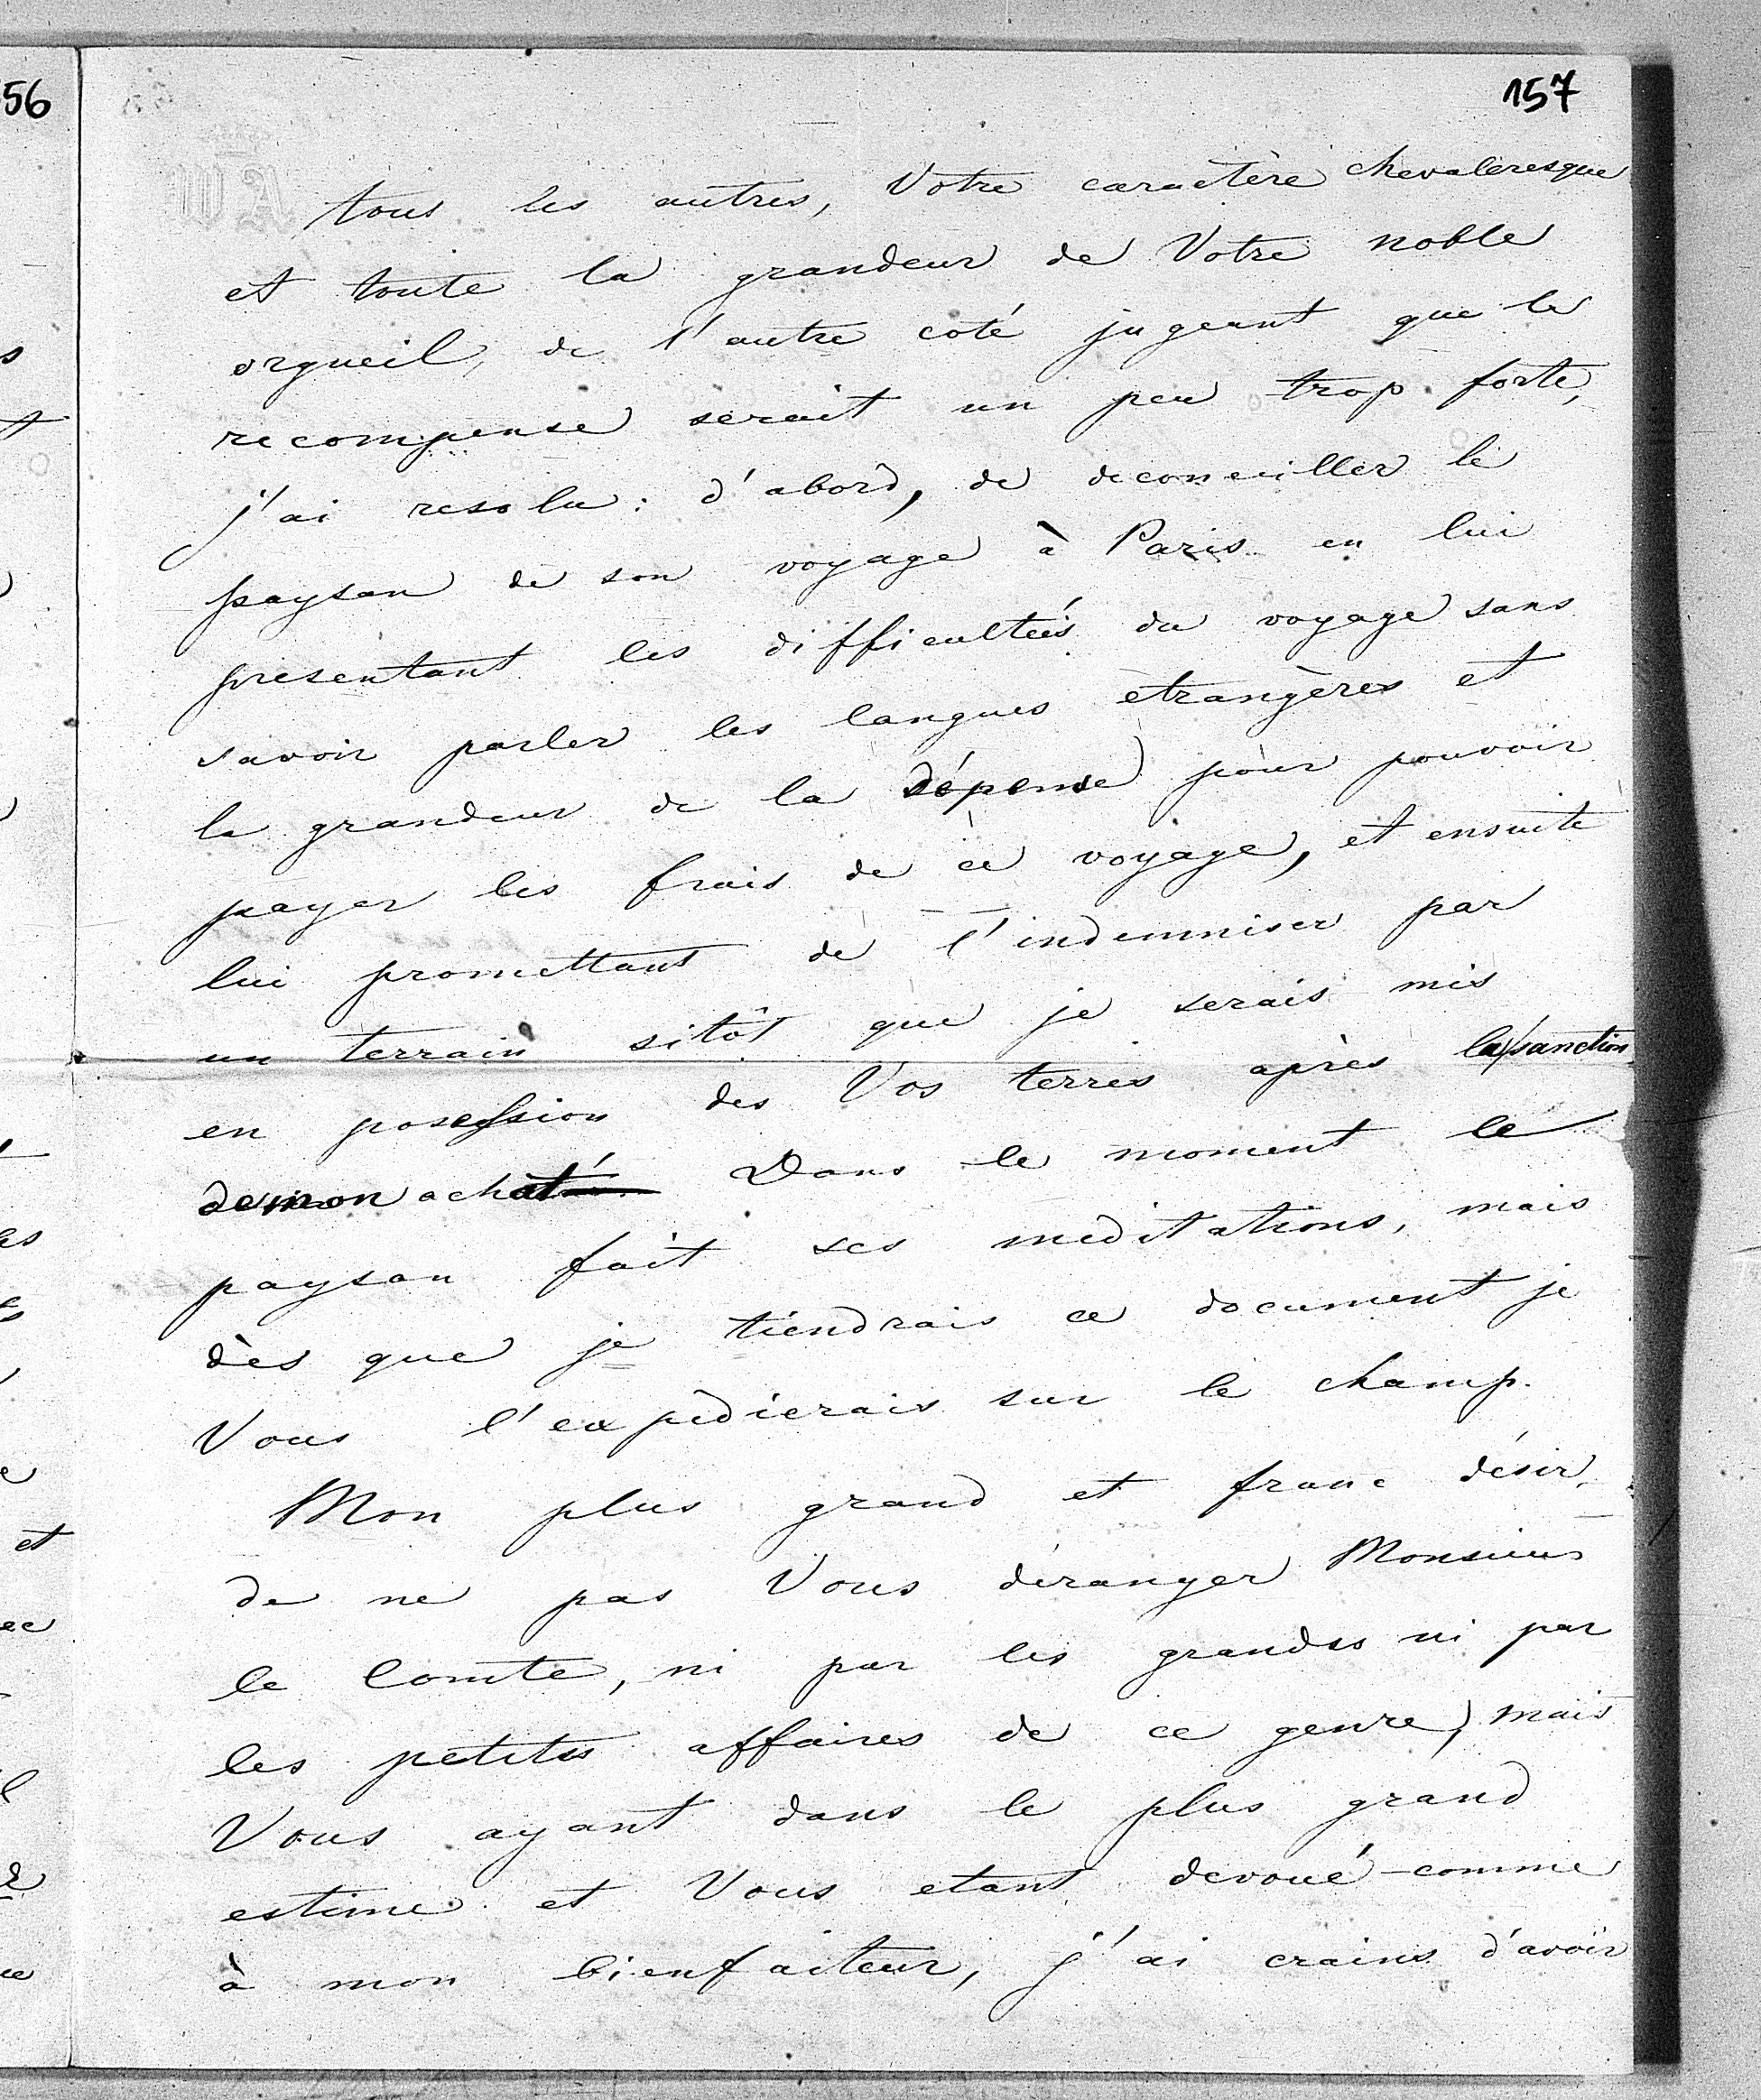 56
157
tous les autres, Votre caractère chevaleresque
et toute la grandeur de Votre noble
orgueil, de l'autre coté jugeant que la
recompense serait un peu trop forte,
j'ai resolu: d'abord, de deconseiller le
paysan de son voyage à Paris en lui
presentant les difficultées du voyage sans
savoir parler les langues etrangères et
la grandeur de la dépense pour pouvoir
payer les frais de ce voyage, et ensuite
lui promettant de l'indemniser par
un terrain sitôt que je serais mis
en posession des Vos terres après la sanction
de mon achat Dans le moment le
paysan fait ses meditations, mais
dès que je tiendrais ce document je
Vous l'expèdierais sur le champ.
Mon plus grand et franc désir,
de ne pas Vous déranger Monsieur
le Comte, ni par les grandes ni par
les petites affaires de ce genre, mais
Vous ayant dans le plus grand
estime et Vous etant devoué comme
à mon bienfaiteur, j'ai crains d'avoir